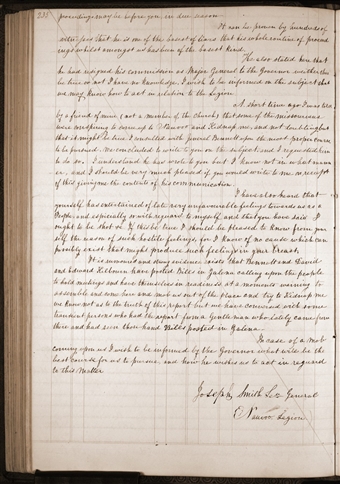 231
proceedings, may be before you in due season.
It can be proven by hundreds of
witnesses that he is one of the basest of liars that his whole routine of proceed
ings whilst amongst us has been of the basest kind.
He also stated here that
he had resigned his commission as Major General to the Governor whether this
be true or not I have no knowledge, I wish to be informed on the subject that
we may know how to act in relation to the Legion
A short time ago I was told
by a friend of mine (not a member of the church) that some of the Missourians
were conspiring to come up to Nauvoo and Kidnap me, and not doubting but
that it might be true I consulted with General Bennett upon the most proper course
to be pursued. We concluded to write to you on the subject, and I requested him
to do so. I understand he has wrote to you but I know not in what mann
er, and I should be very much pleased if you would write to me on receipt
of this giving me the contents of his communication.
I have also heard that
yourself has entertained of late very unfavorable feelings towards us as a
People and especially so with regard to myself and that you have said I
ought to be shot &c. If this be true I should be pleased to know from your
self the reason of such hostile feelings, for I know of no cause which can
possibly exist that might produce such feelings in your breast.
It is rumored and strong evidence exists that Bennett and David
and Edward Kilbourn have posted Bills in Galena calling upon the people
to hold meetings and have themselves in readiness at a moments warning to
assemble and come here and mob us out of the place and try to Kidnap me
we know not as to the truth of this report but we have conversed with some
transient persons who had the report from a gentleman who lately came from
there and had seen those hand Bills posted in Galena.
In case of a mob
coming upon us I wish to be informed by the Governor what will be the
best course for us to pursue and how he wishes us to act in regard
to this matter
Joseph Smith Lt General
Nauvoo Legion